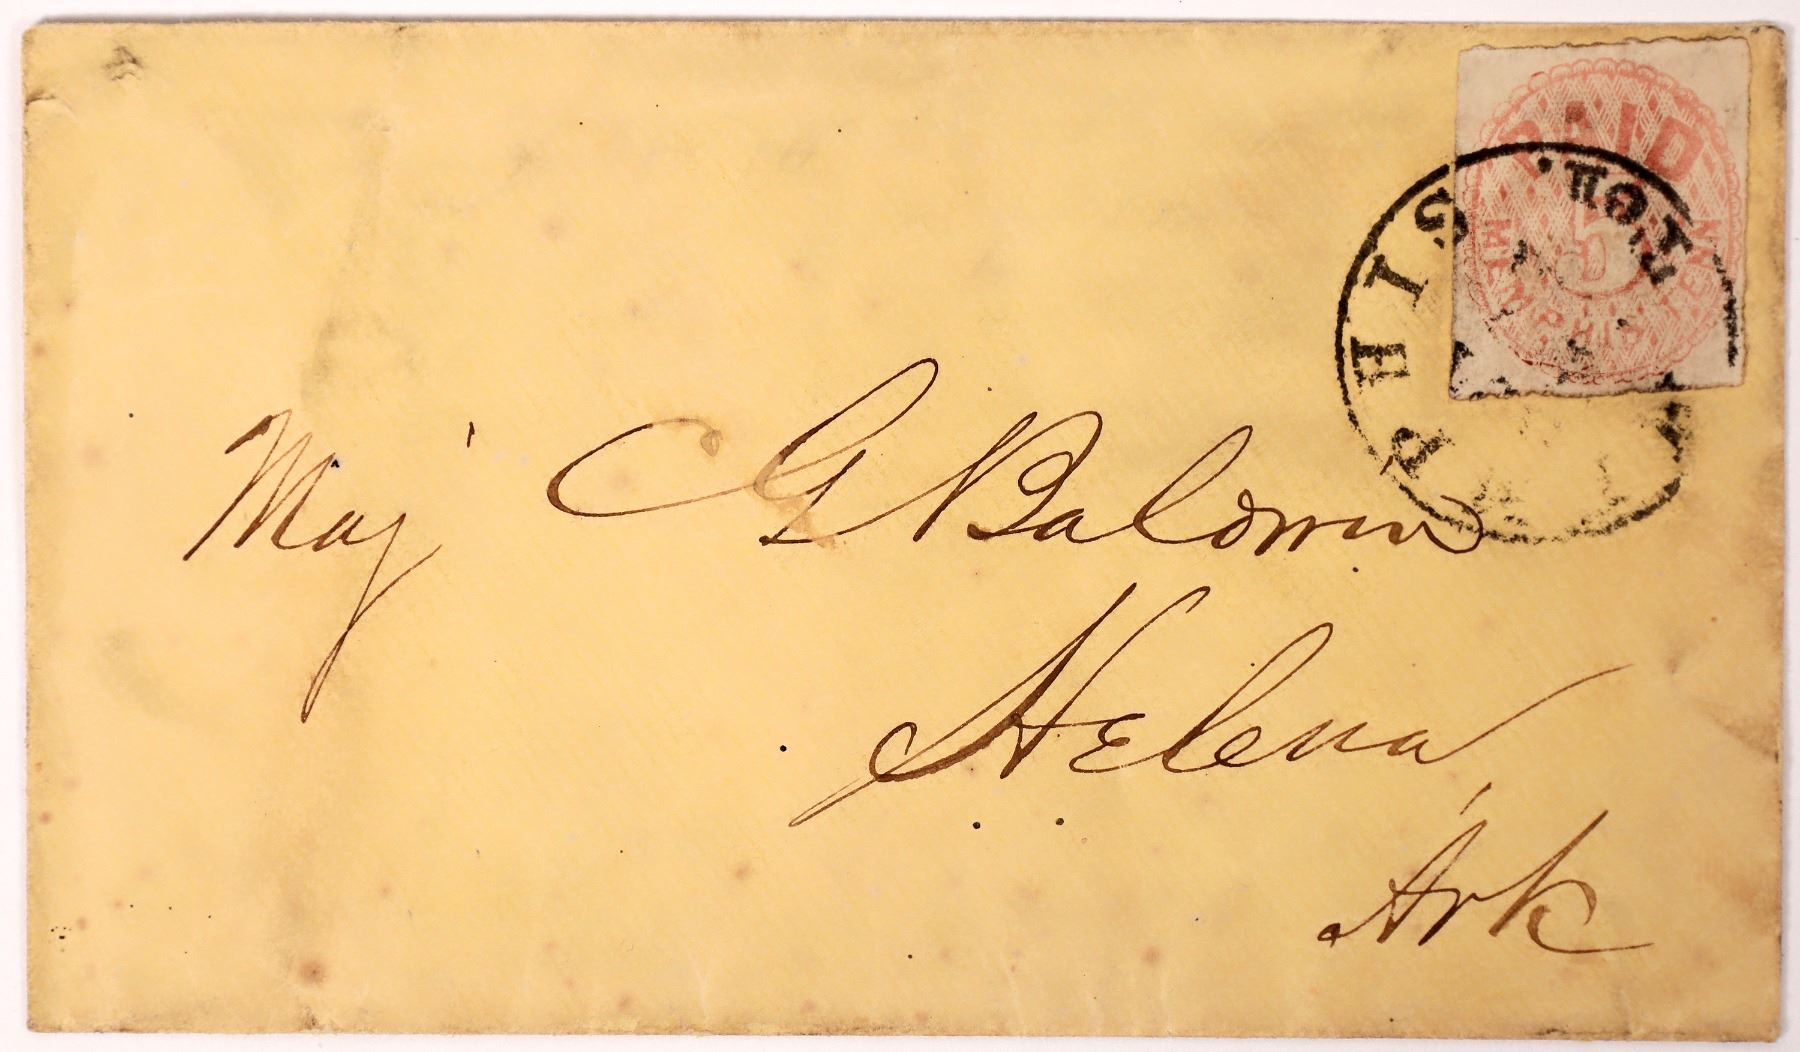 PAID
5
MEMPHIS TEN
MEMPHIS Ten.
Maj' C G Baldwin
Helena
Ark